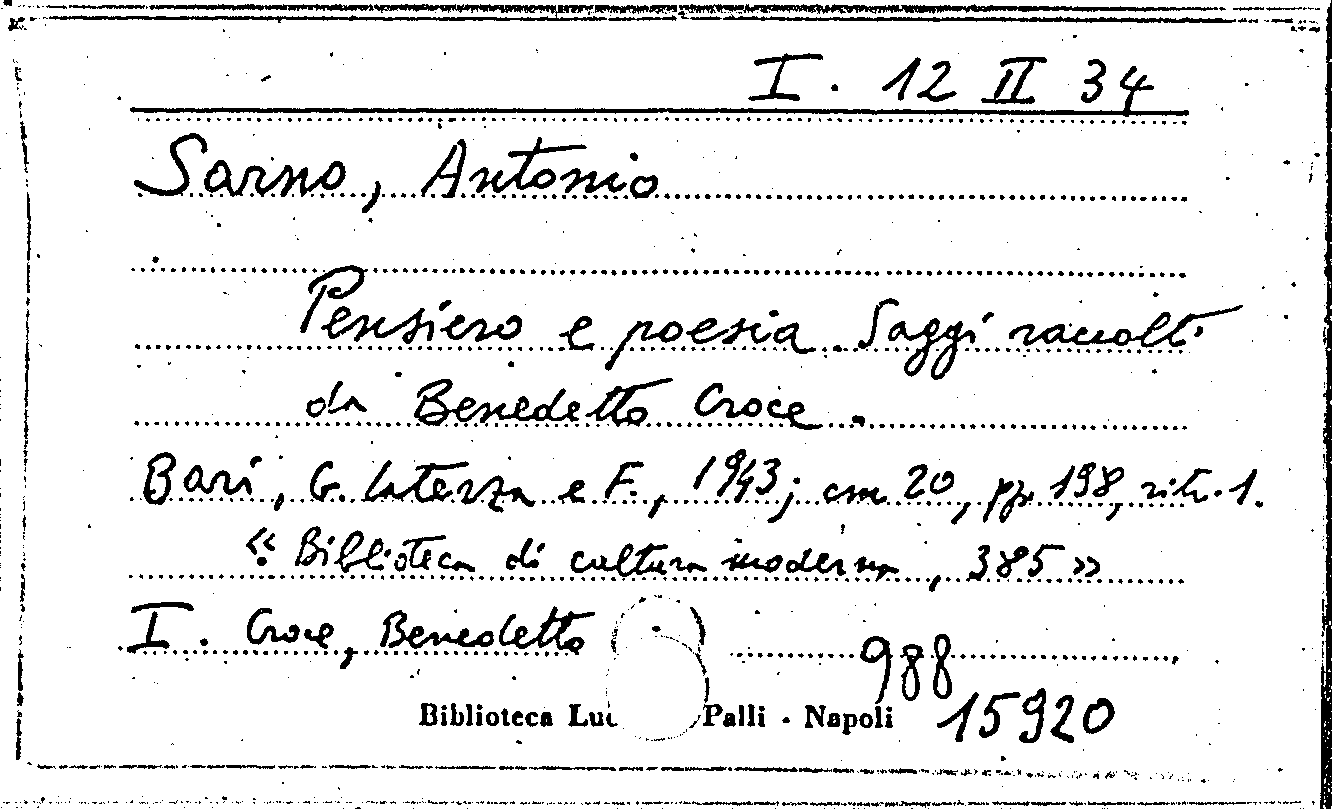 I. 12 II 34
Sarno, Antonio
Pensiero e poesia. Saggi raccolti
da Benedetto Croce.
Bari, G. Laterza e F., 1943; cm 20, pp. 198, ritr. 1.
«Biblioteca di cultura moderna, 385»
I. Croce, Benedetto
988
Biblioteca Luc Palli - Napoli 15920